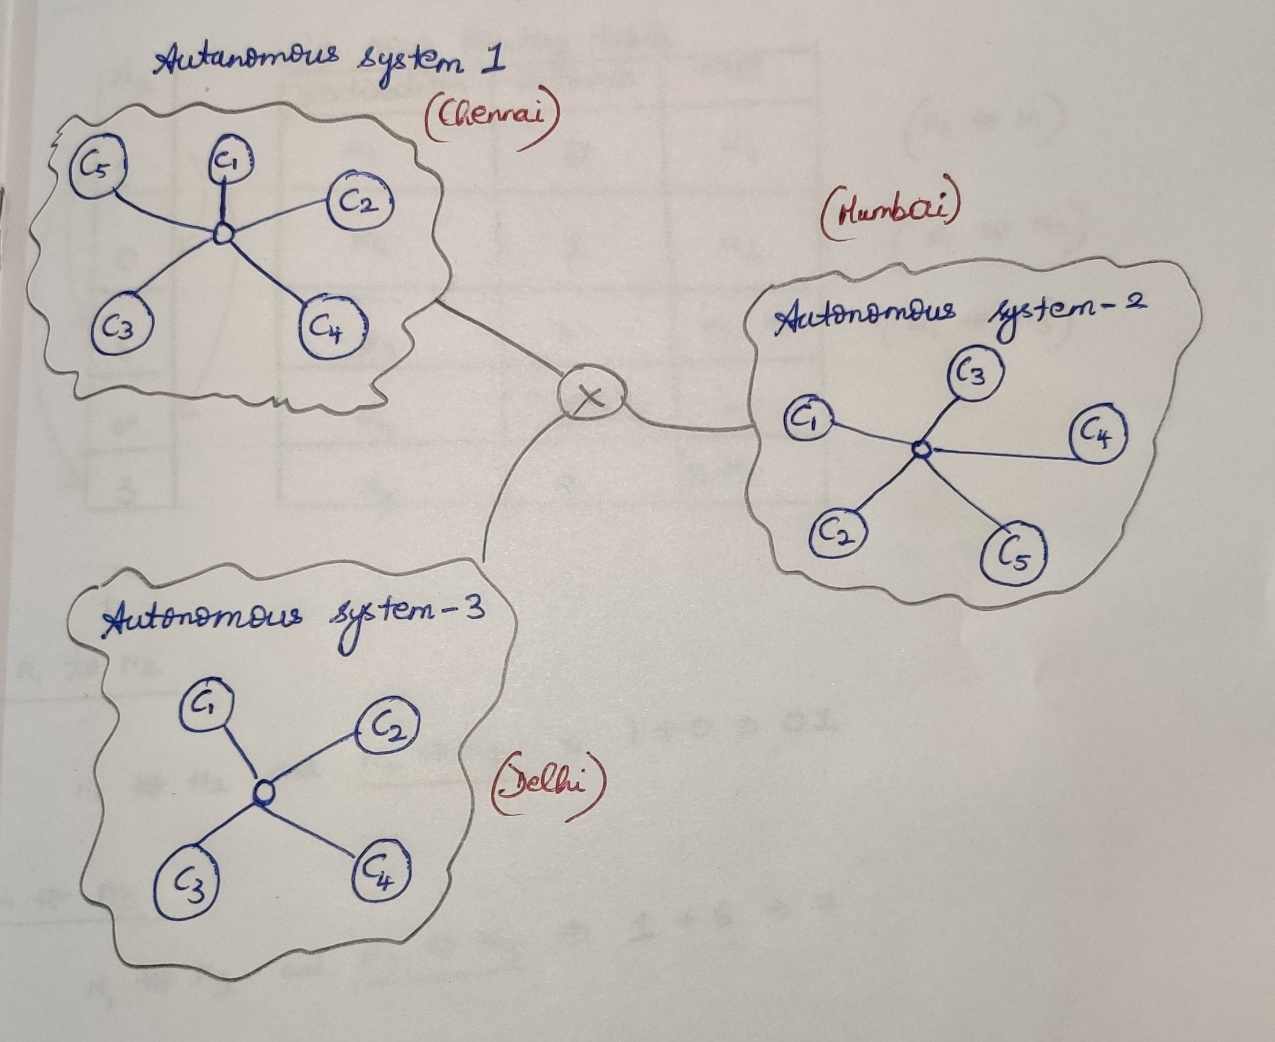 Autanomous system 1
(Chennai)
C5
C1
C2
C3
C4
(Mumbai)
Autonomous system-2
C3
C1
C4
C2
C5
X
Autonomous system-3
C1
C2
(Delhi)
C3
C4